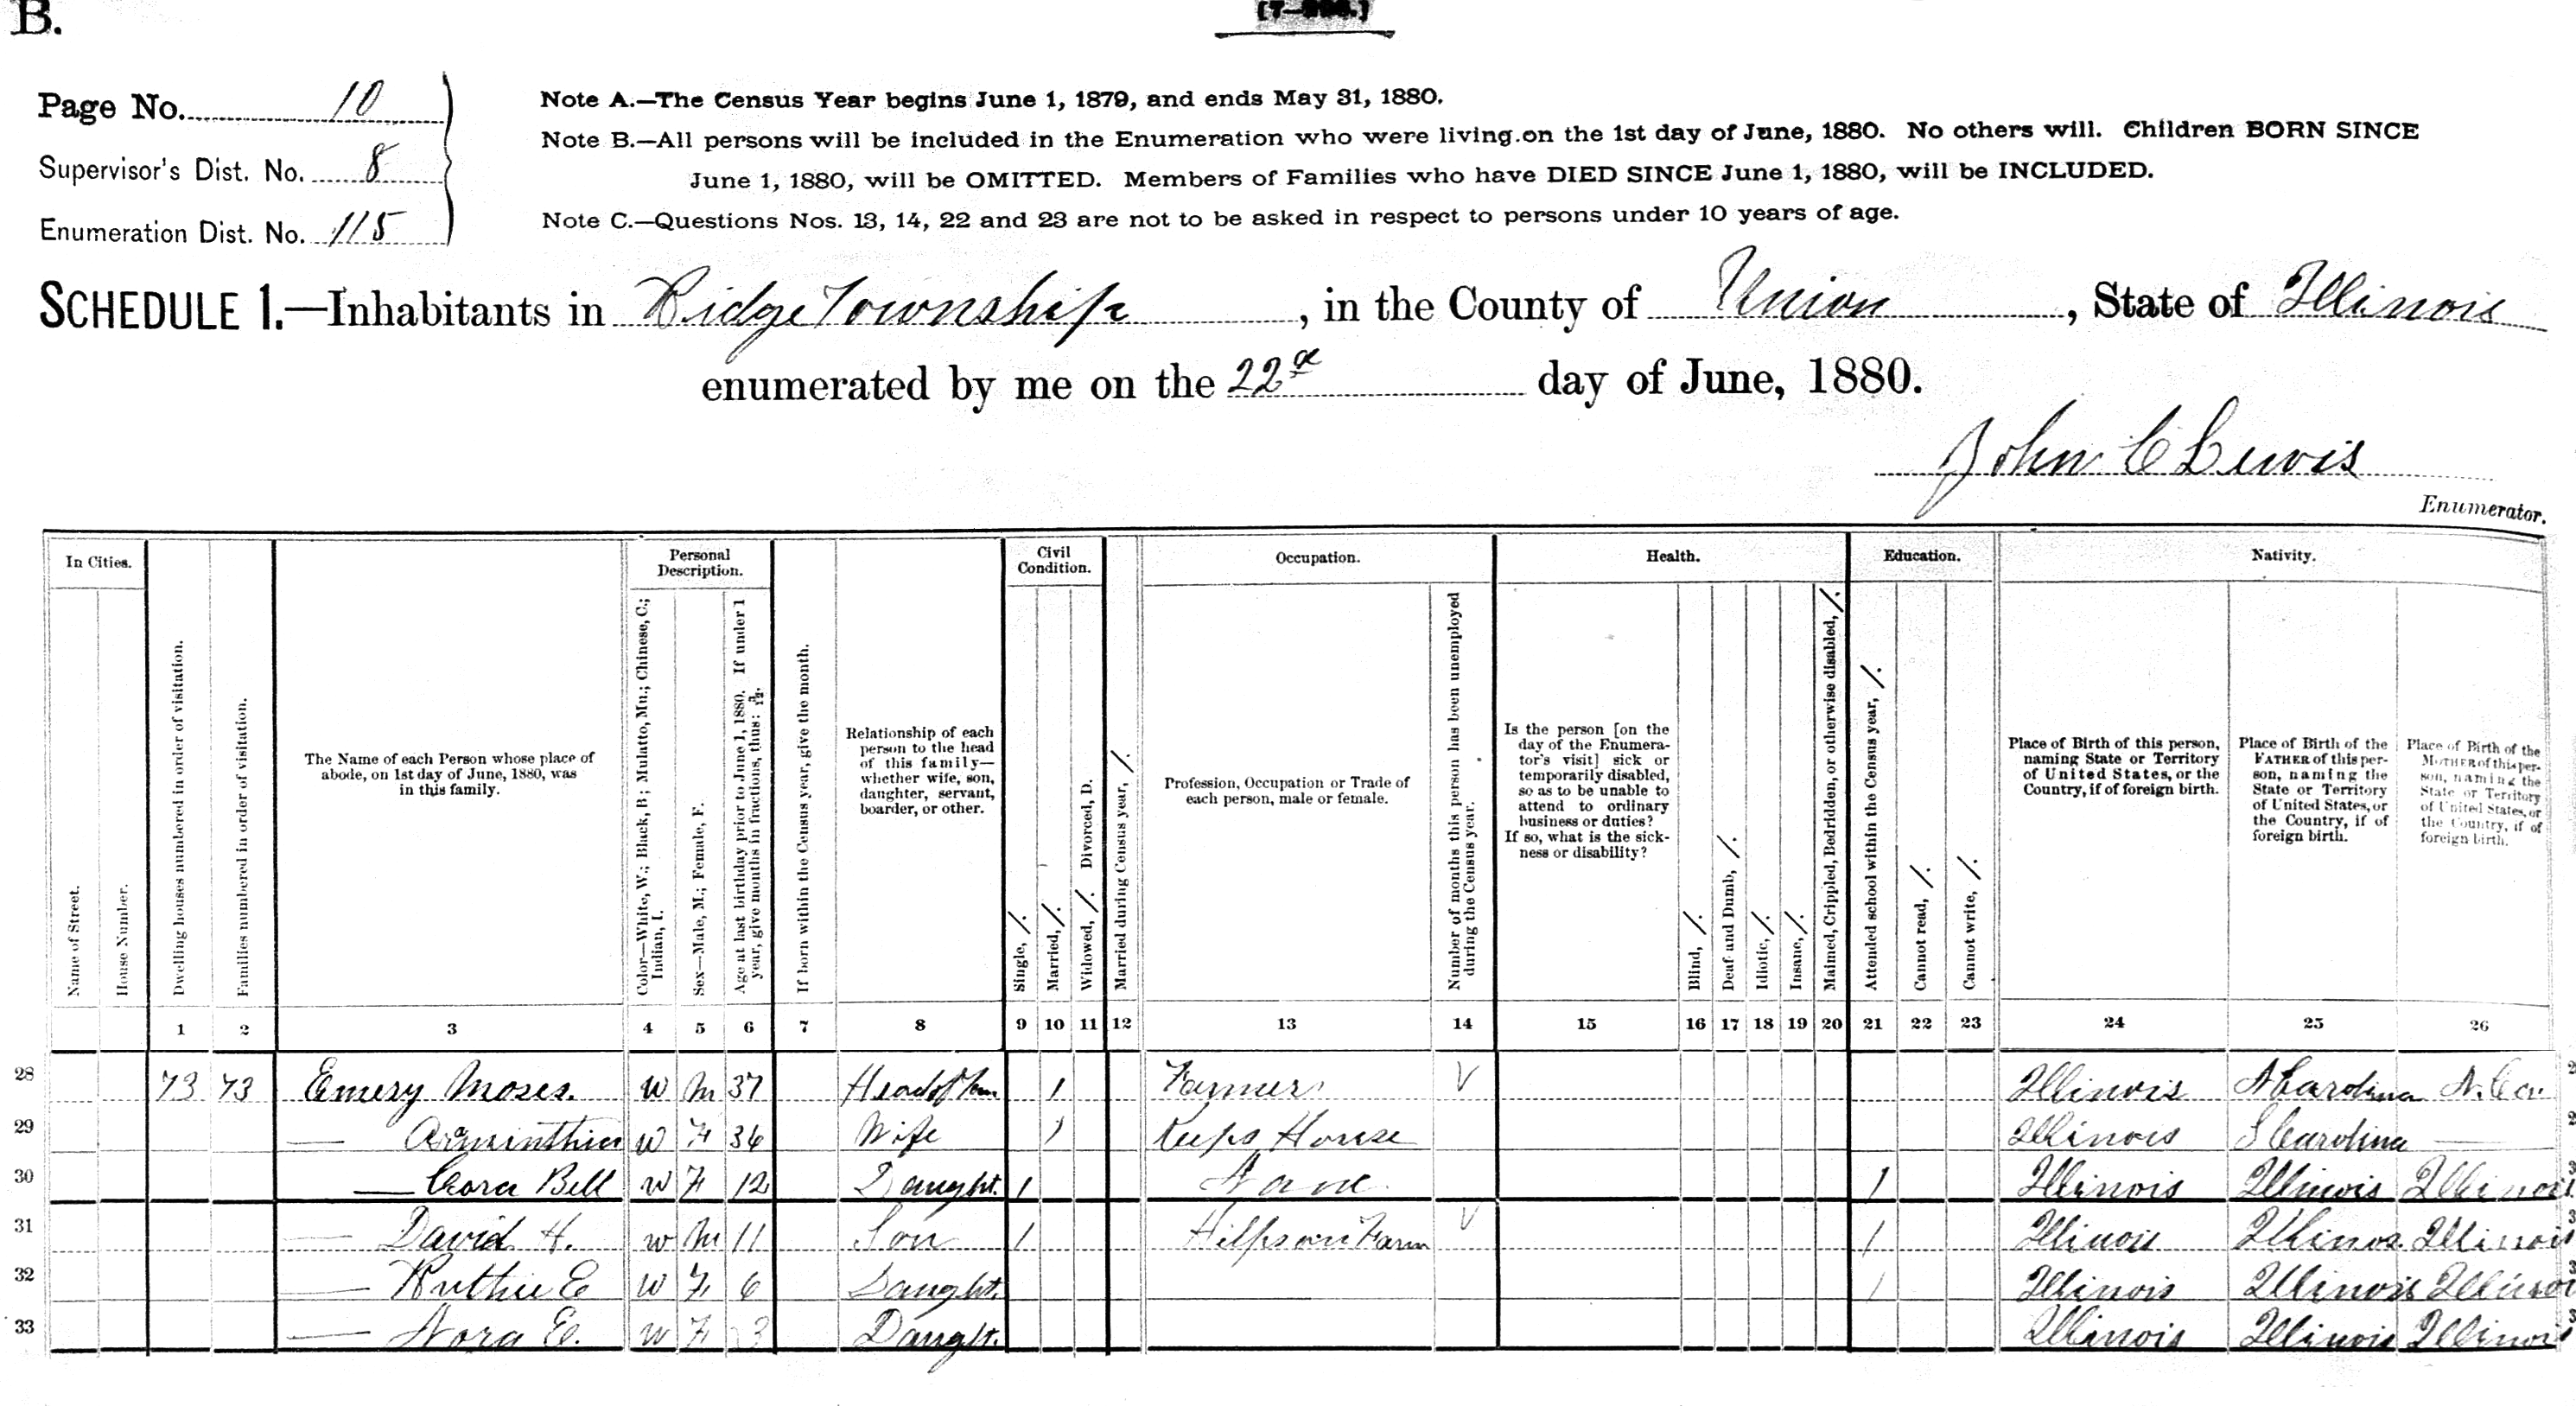 B.
Page No. 10
Supervisor's Dist. No. 8
Enumeration Dist. No. 115
Note A.—The Census Year begins June 1, 1879, and ends May 31, 1880.
Note B.—All persons will be included in the Enumeration who were living on the 1st day of June, 1880. No others will. Children BORN SINCE
June 1, 1880, will be OMITTED. Members of Families who have DIED SINCE June 1, 1880, will be INCLUDED.
Note C.—Questions Nos. 13, 14, 22 and 23 are not to be asked in respect to persons under 10 years of age.
SCHEDULE 1.—Inhabitants in Ridge Township, in the County of Union, State of Illinois
enumerated by me on the 22d day of June, 1880.
John C Lewis
Enumerator.
In Cities.
Name of Street.
House Number.
Dwelling houses numbered in order of visitation.
Families numbered in order of visitation.
The Name of each Person whose place of
abode, on 1st day of June, 1880, was
in this family.
Personal
Description.
Color—White, W.; Black, B.; Mulatto, Mu.; Chinese, C.;
Indian, I.
Sex—Male, M.; Female, F.
Age at last birthday prior to June 1, 1880. If under 1
year, give months in fractions, thus: 3/12.
If born within the Census year, give the month.
Relationship of each
person to the head
of this family—
whether wife, son,
daughter, servant,
boarder, or other.
Civil
Condition.
Single, /.
Married, /.
Widowed, /. Divorced, D.
Married during Census year, /.
Occupation.
Profession, Occupation or Trade of
each person, male or female.
Number of months this person has been unemployed
during the Census year.
Health.
Is the person [on the
day of the Enumera-
tor's visit] sick or
temporarily disabled,
so as to be unable to
attend to ordinary
business or duties?
If so, what is the sick-
ness or disability?
Blind, /.
Deaf and Dumb, /.
Idiotic, /.
Insane, /.
Maimed, Crippled, Bedridden, or otherwise disabled, /.
Education.
Attended school within the Census year, /.
Cannot read, /.
Cannot write, /.
Nativity.
Place of Birth of this person,
naming State or Territory
of United States, or the
Country, if of foreign birth.
Place of Birth of the
FATHER of this per-
son, naming the
State or Territory
of United States, or
the Country, if of
foreign birth.
Place of Birth of the
MOTHER of this per-
son, naming the
State or Territory
of United States, or
the Country, if of
foreign birth.
1 2 3 4 5 6 7 8 9 10 11 12 13 14 15 16 17 18 19 20 21 22 23 24 25 26
28 73 73 Emery Moses. W M 37 Head of Fam / Farmer Illinois N Carolina N. Car
29 — Araminthia W F 36 Wife / Keeps House Illinois S Carolina —
30 — Cora Bell W F 12 Daught. / None / Illinois Illinois Illinois
31 — David H. W M 11 Son / Helps on Farm / Illinois Illinois Illinois
32 — Ruthie E W F 6 Daught. / Illinois Illinois Illinois
33 — Nora E. W F 3 Daught. Illinois Illinois Illinois